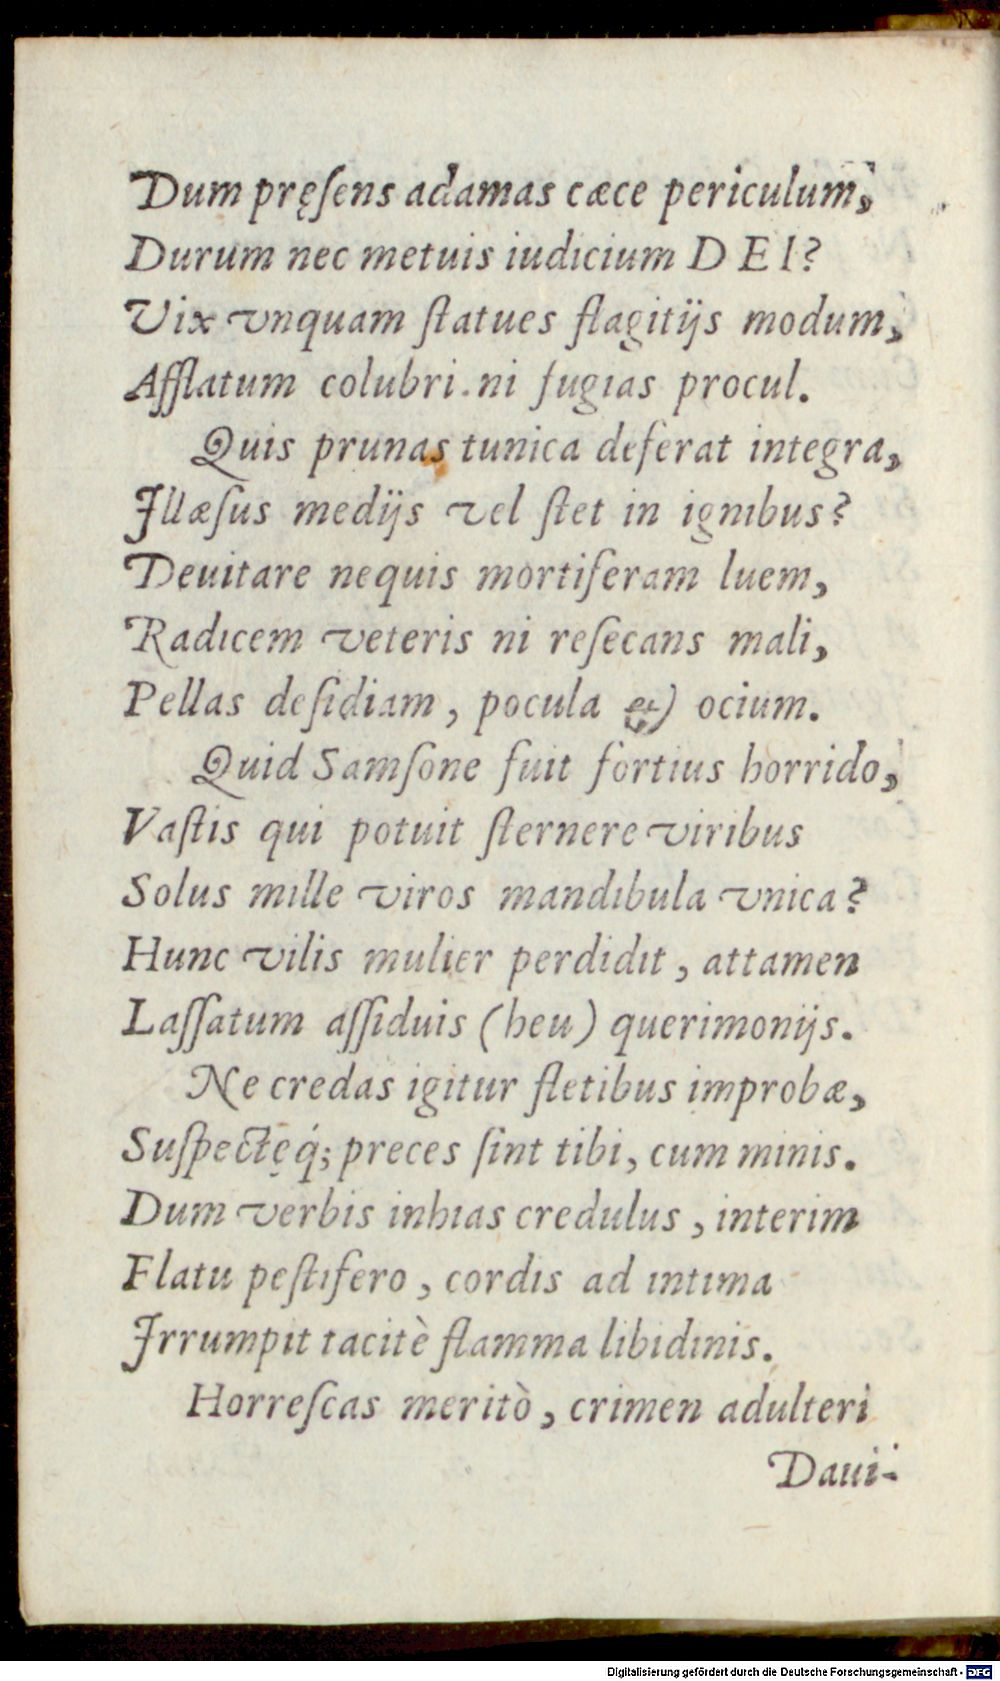 Dum pręſens adamas cæce periculum,
Durum nec metuis iudicium DEI?
Vix vnquam ſtatues flagitijs modum,
Afflatum colubri ni fugias procul.
Quis prunas tunica deferat integra,
Illæſus medijs vel ſtet in ignibus?
Deuitare nequis mortiferam luem,
Radicem veteris ni reſecans mali,
Pellas deſidiam, pocula & ocium.
Quid Samſone fuit fortius horrido,
Vaſtis qui potuit ſternere viribus
Solus mille viros mandibula vnica?
Hunc vilis mulier perdidit, attamen
Laſſatum aſſiduis (heu) querimonijs.
Ne credas igitur fletibus improbæ,
Suſpectęq́; preces ſint tibi, cum minis.
Dum verbis inhias credulus, interim
Flatu peſtifero, cordis ad intima
Irrumpit tacitè flamma libidinis.
Horreſcas meritò, crimen adulteri
Daui-
Digitalisierung gefördert durch die Deutsche Forschungsgemeinschaft - DFG